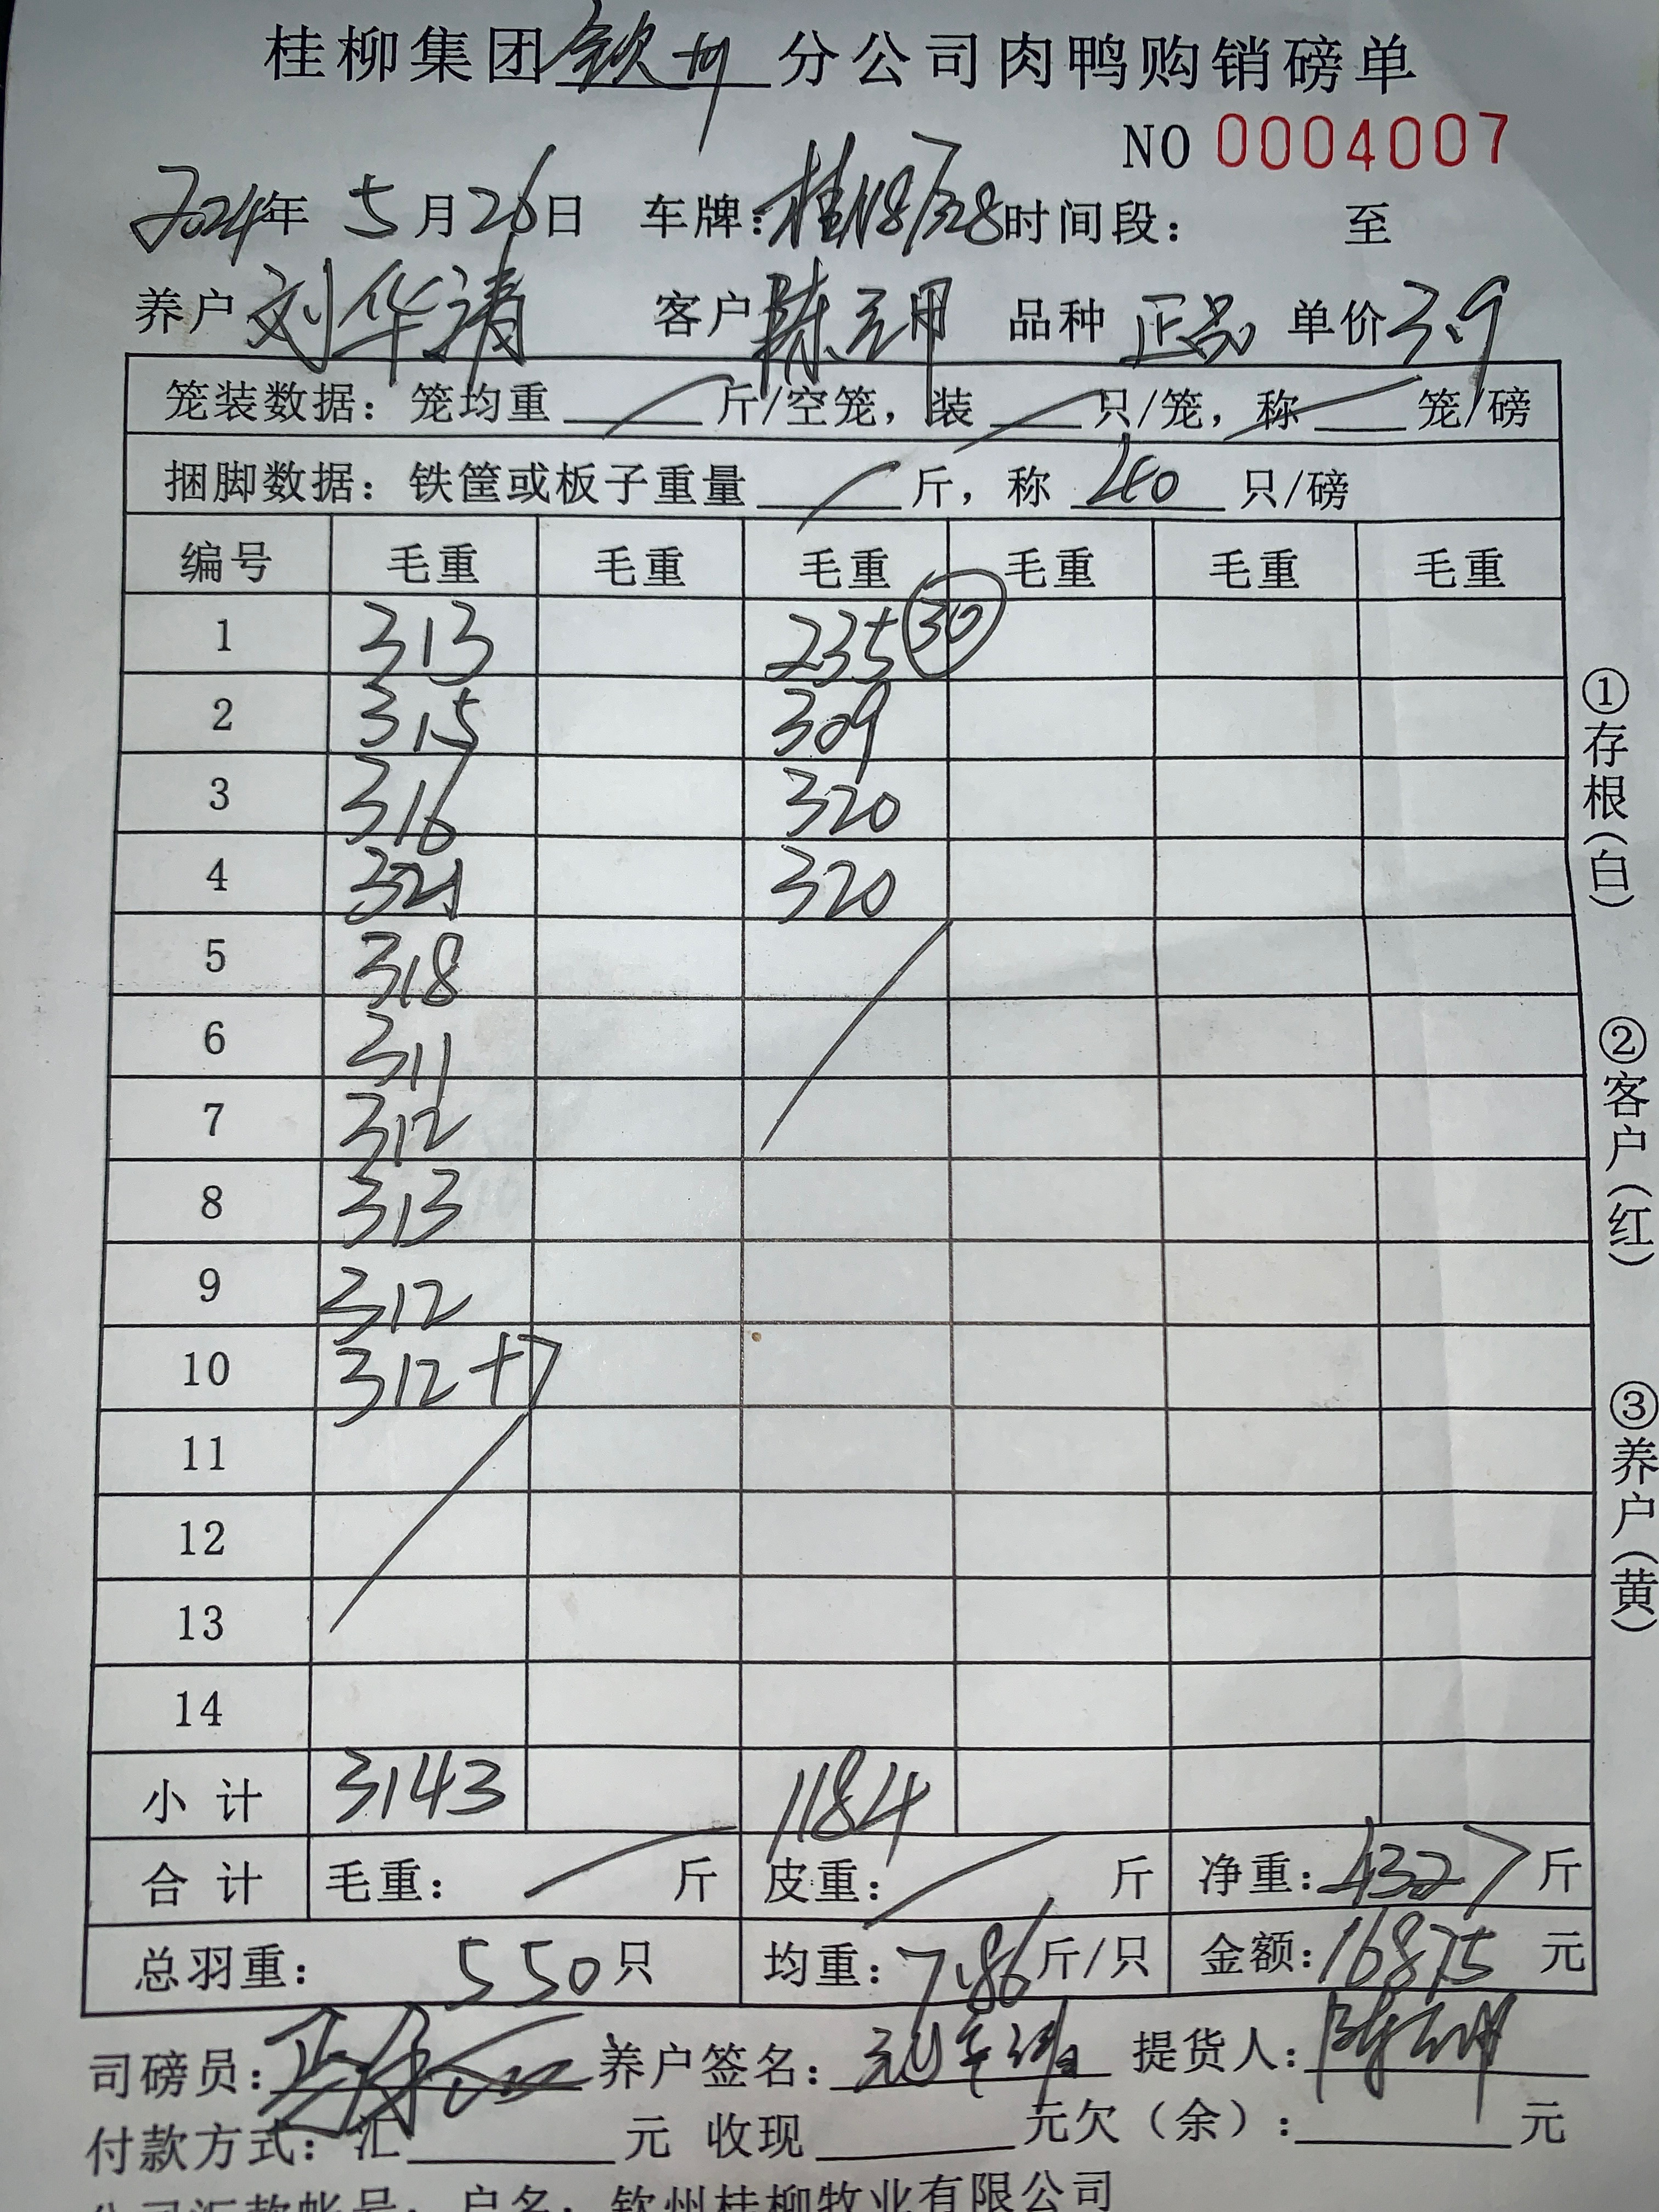 桂柳集团钦州分公司肉鸭购销磅单
NO 0004007
2024年 5月26日 车牌:桂N87328时间段: 至
养户刘华清 客户陈三明 品种 正品 单价3.9
笼装数据: 笼均重 斤/空笼, 装 只/笼, 称 笼/磅
捆脚数据: 铁筐或板子重量 斤, 称 40 只/磅
编号 毛重 毛重 毛重 毛重 毛重 毛重
1 313 235 30
2 315 309
3 316 320
4 321 320
5 318
6 311
7 312
8 313
9 312
10 312+7
11
12
13
14
小计 3143 1184
合计 毛重: 斤 皮重: 斤 净重:4327斤
总羽重: 550只 均重:7.86斤/只 金额:16875 元
司磅员: 养户签名: 提货人:
付款方式: 汇 元 收现 元欠(余): 元
公司汇款帐号: 户名: 钦州桂柳牧业有限公司
①存根(白)
②客户(红)
③养户(黄)